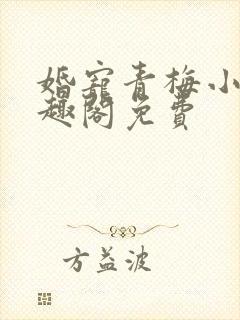 婚寵青梅小
趣阁免費
方益波